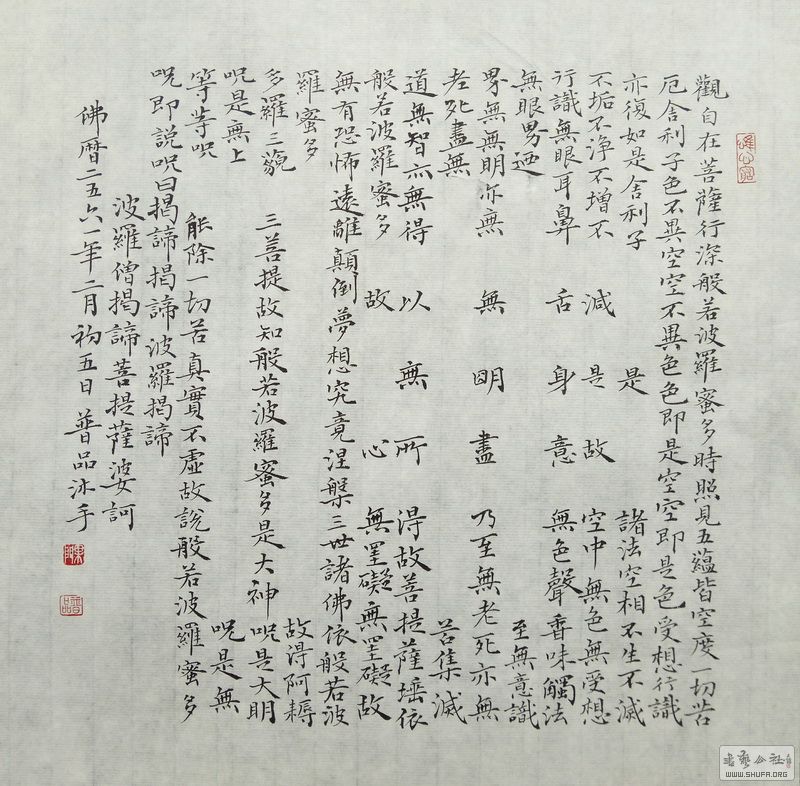 觀自在菩薩行深般若波羅蜜多時照見五蘊皆空度一切苦
厄舍利子色不異空空不異色色即是空空即是色受想行識
亦復如是舍利子 是 諸法空相不生不滅
不垢不淨不增不 減 是 故 空中無色無受想
行識無眼耳鼻 舌 身 意 無色聲香味觸法
無眼界迺 至無意識
界無無明亦無 無 明 盡 乃至無老死亦無
老死盡無 苦集滅
道無智亦無得 以 無 所 得故菩提薩埵依
般若波羅蜜多 故 心 無罣礙無罣礙故
無有恐怖遠離顛倒夢想究竟涅槃三世諸佛依般若波
羅蜜多 故得阿耨
多羅三藐 三菩提故知般若波羅蜜多是大神 呪是大明
呪是無上 呪是無
等等呪 能除一切苦真實不虛故說般若波羅蜜多
呪即說呪曰揭諦揭諦波羅揭諦
波羅僧揭諦菩提薩婆訶
佛曆二五六一年二月初五日 普品沐手
普品
書藝公社
WWW.SHUFA.ORG